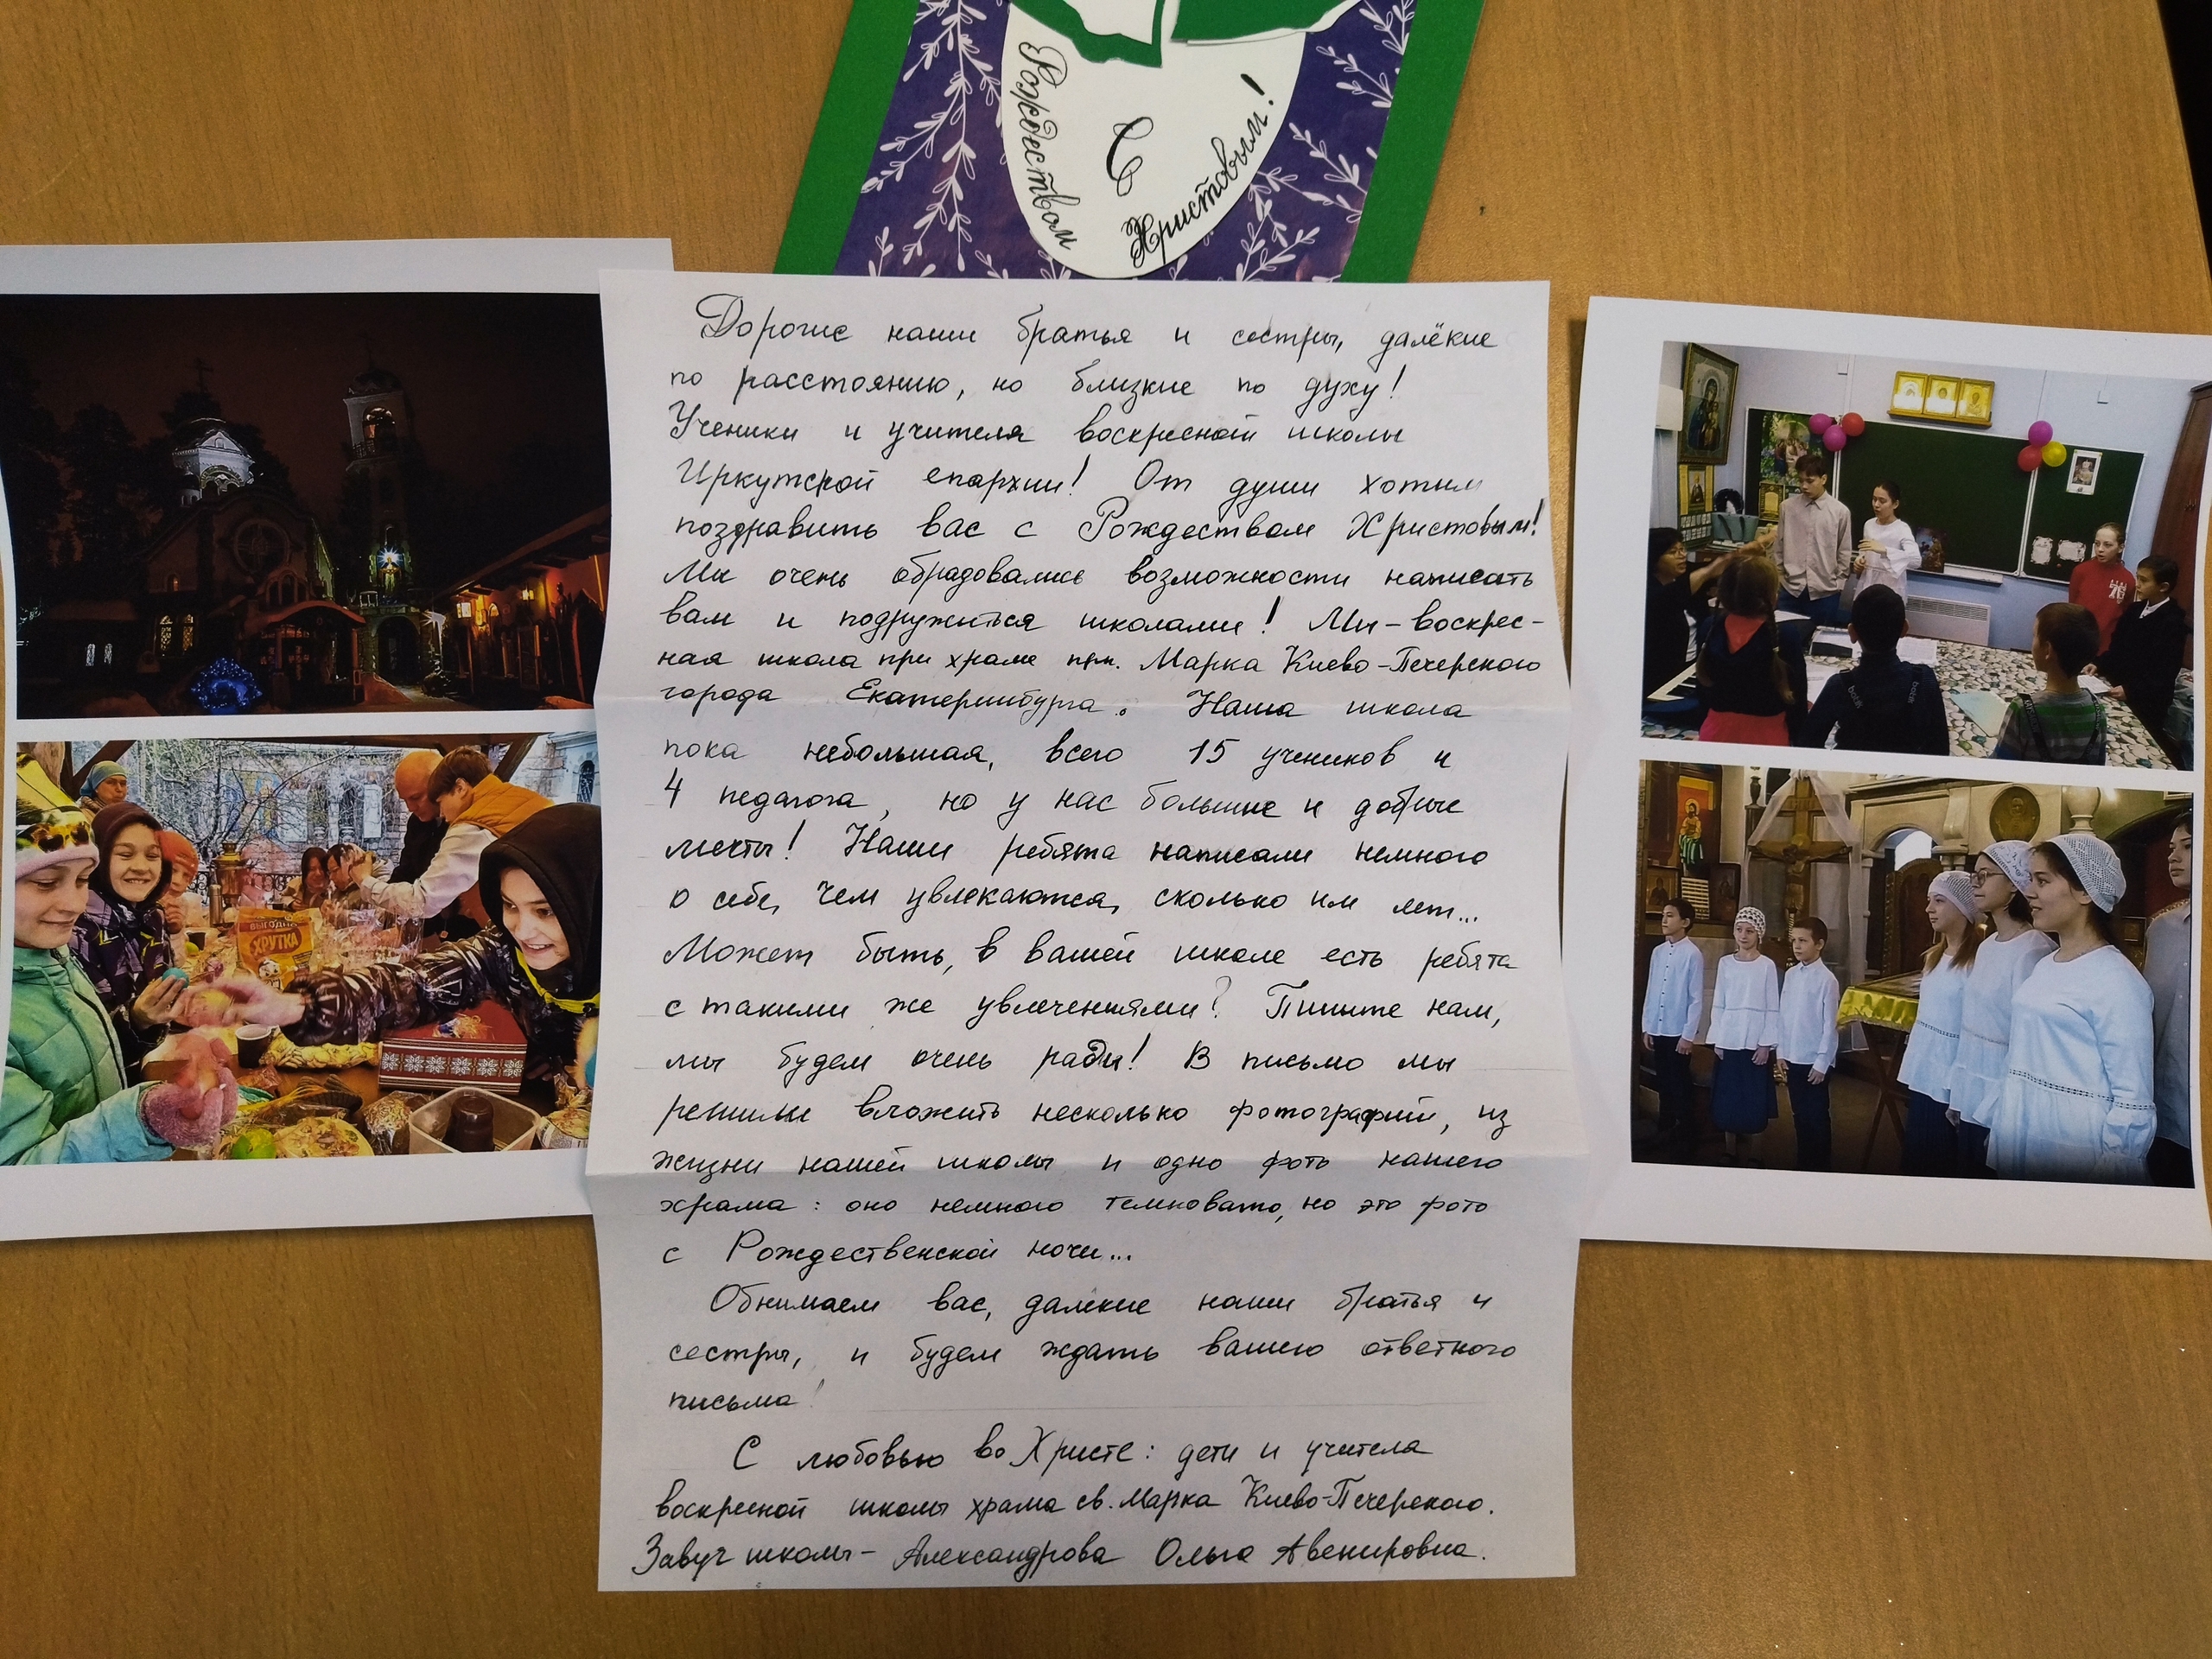 С
Рождеством
Христовым!
Дорогие наши братья и сестры, далёкие
по расстоянию, но близкие по духу!
Ученики и учителя воскресной школы
Иркутской епархии! От души хотим
поздравить вас с Рождеством Христовым!
Мы очень обрадовались возможности написать
вам и подружиться школами! Мы – воскрес-
ная школа при храме прп. Марка Киево-Печерского
города Екатеринбурга. Наша школа
пока небольшая, всего 15 учеников и
4 педагога, но у нас большие и добрые
мечты! Наши ребята написали немного
о себе, чем увлекаются, сколько им лет...
Может быть, в вашей школе есть ребята
с такими же увлечениями? Пишите нам,
мы будем очень рады! В письмо мы
решили вложить несколько фотографий, из
жизни нашей школы и одно фото нашего
храма: оно немного темновато, но это фото
с Рождественской ночи...
Обнимаем вас, далёкие наши братья и
сестры, и будем ждать вашего ответного
письма!
С любовью во Христе: дети и учителя
воскресной школы храма св. Марка Киево-Печерского.
Завуч школы – Александрова Ольга Авенировна.
ВЫГОДНА
ХРУТКА